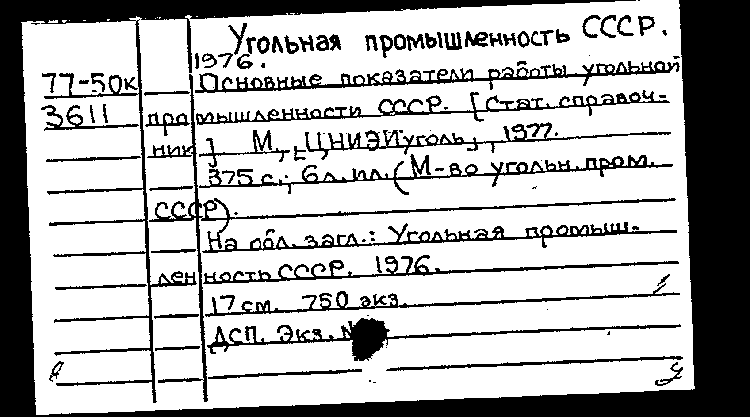 Угольная промышленность СССР.
1976.
77-50к Основные показатели работы угольной
3611 промышленности СССР. [Стат. справоч-
ник] М., „ЦНИЭИуголь", 1977.
375 с.; 6 л. ил. (М-во угольн. пром.
СССР).
На обл. загл.: Угольная промыш-
ленность СССР. 1976.
17 см. 750 экз.
ДСП. Экз. №